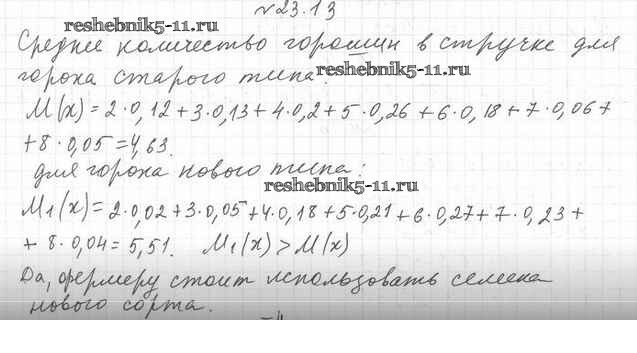 №23.13
reshebnik5-11.ru
Среднее количество горошин в стручке для
гороха старого типа:
reshebnik5-11.ru
M(x) = 2·0,12+3·0,13+4·0,2+5·0,26+6·0,18+7·0,06+
+8·0,05=4,63.
для гороха нового типа:
reshebnik5-11.ru
M₁(x)=2·0,02+3·0,05+4·0,18+5·0,21+6·0,27+7·0,23+
+ 8·0,04= 5,51. M₁(x)>M(x)
Да, фермеру стоит использовать семена
нового сорта.